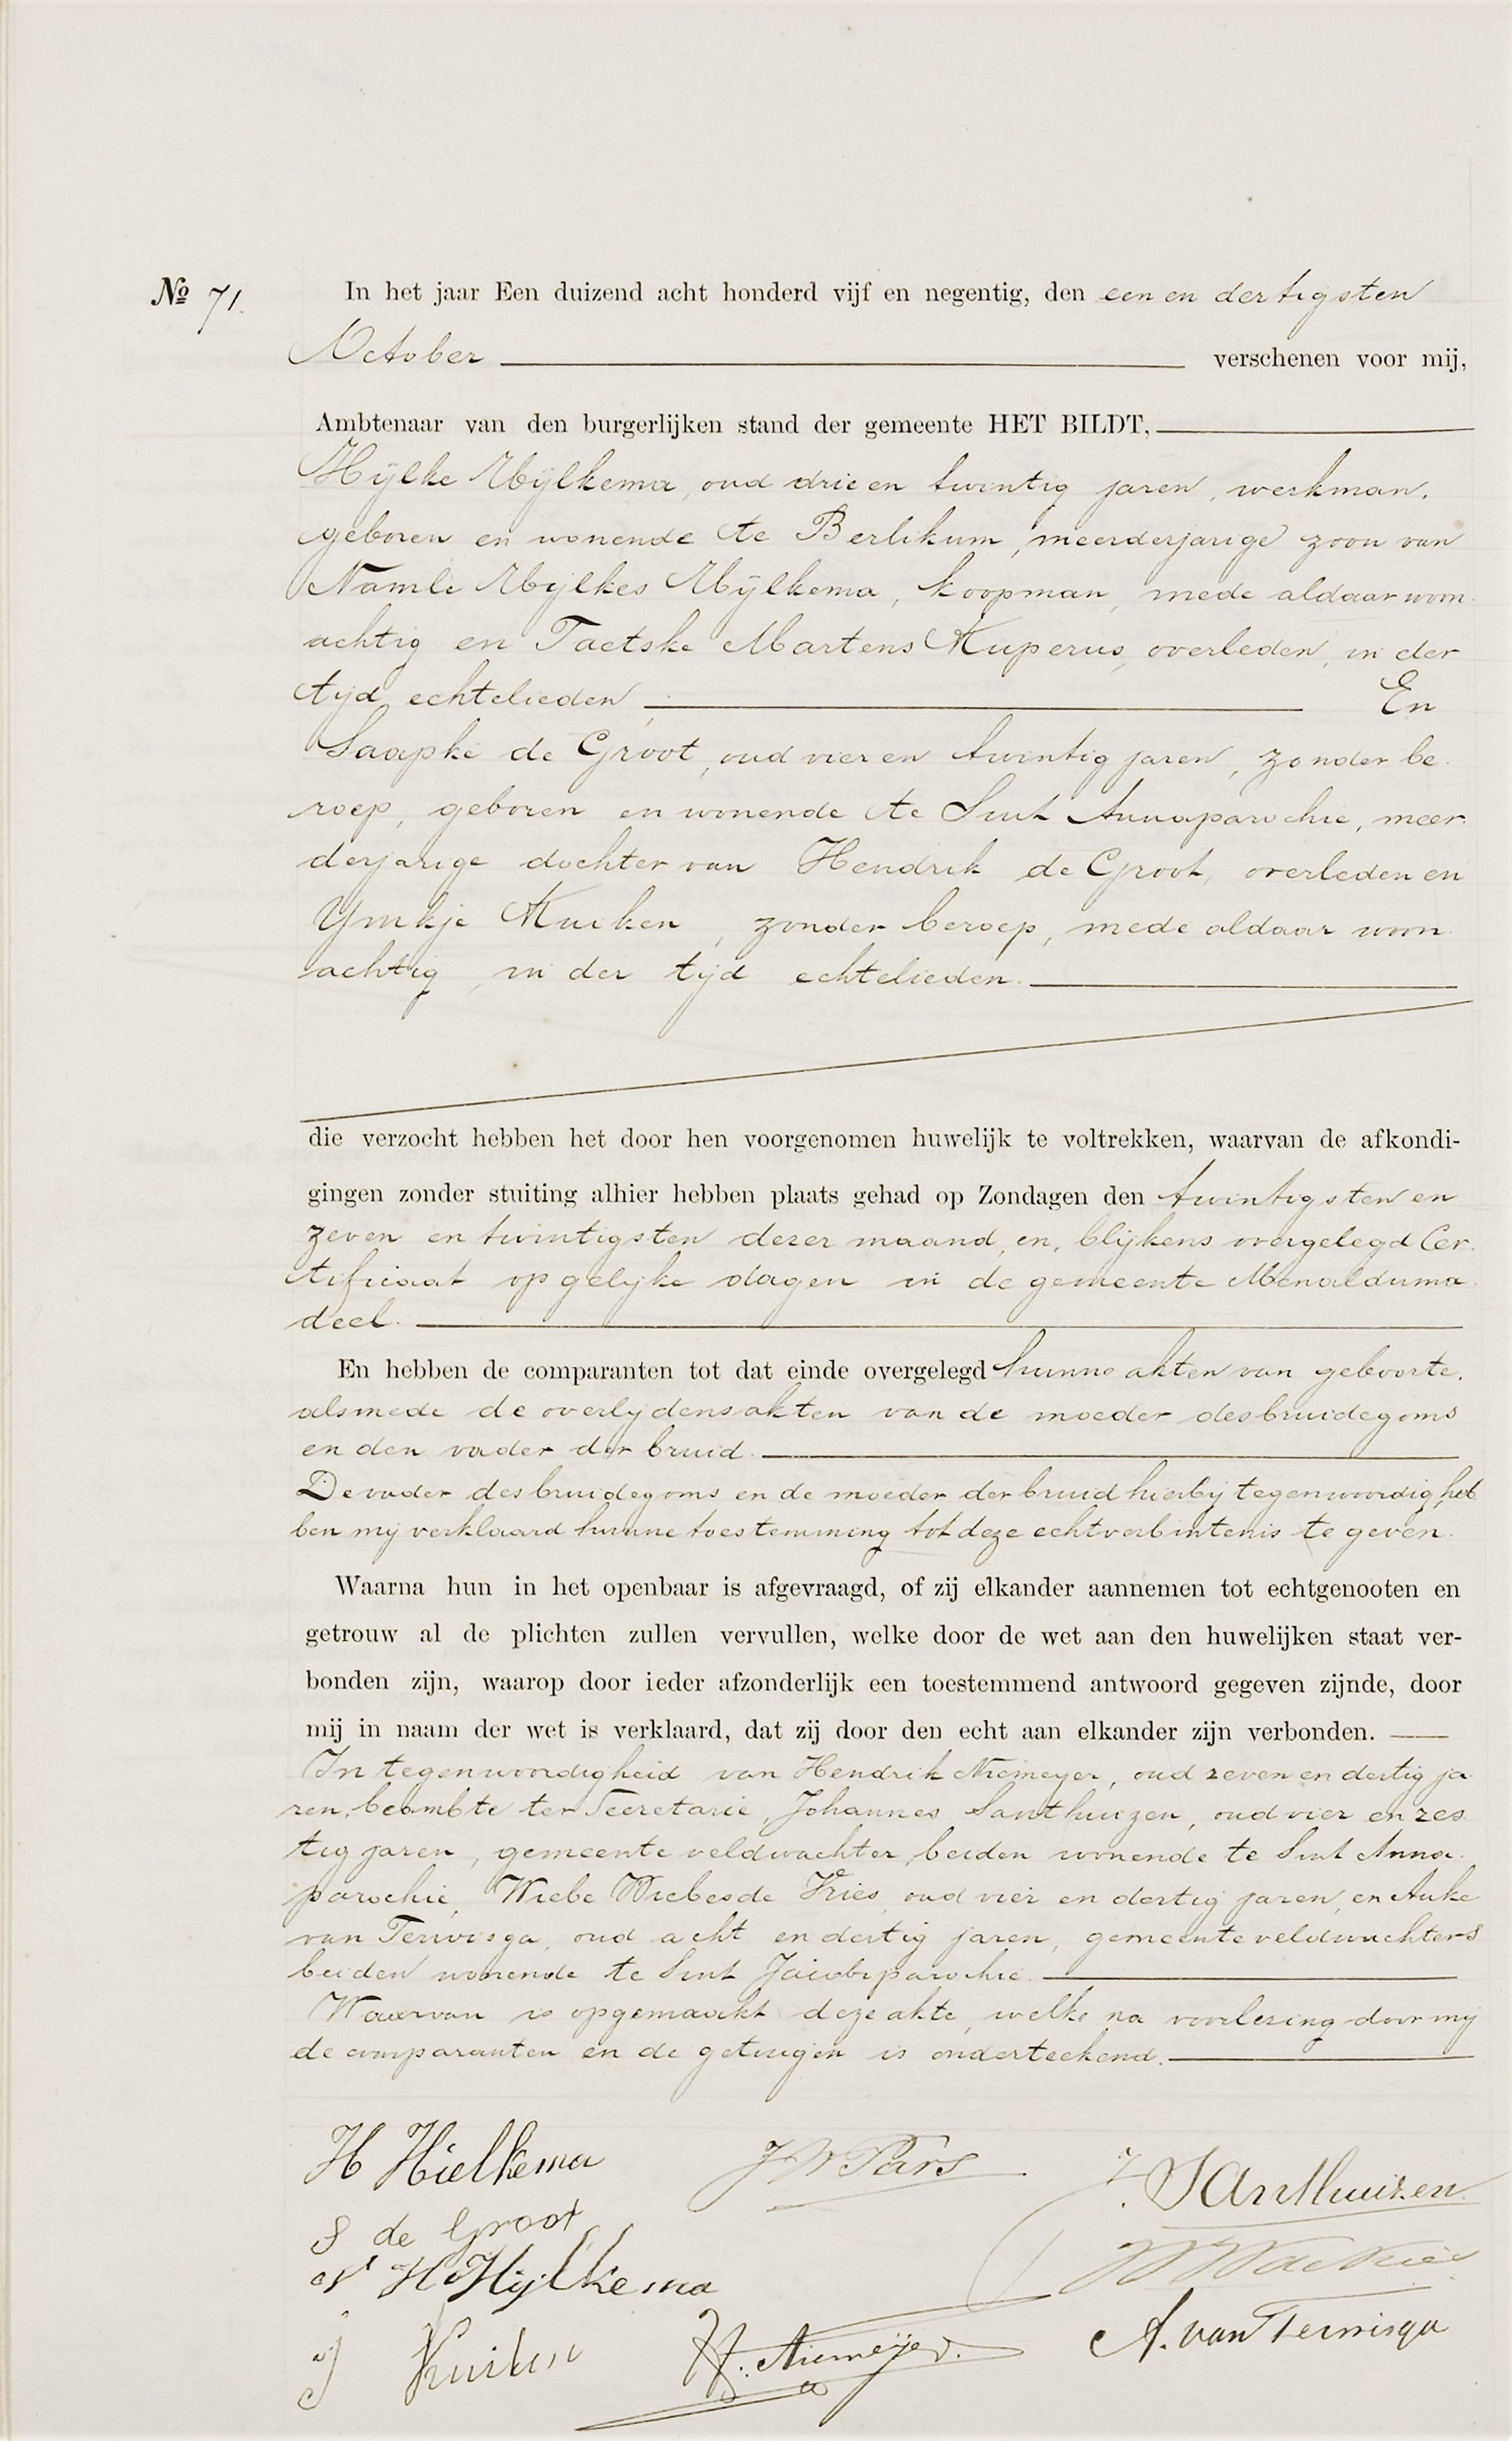 No 71.
In het jaar Een duizend acht honderd vijf en negentig, den een en dertigsten
October verschenen voor mij,
Ambtenaar van den burgerlijken stand der gemeente HET BILDT,
Hijlke Hijlkema, oud drie en twintig jaren, werkman,
geboren en wonende te Berlikum, meerderjarige zoon van
Namle Hijlkes Hijlkema, koopman, mede aldaar woon
achtig en Taetske Martens Kuperus, overleden, in der
tijd echtelieden; En
Saapke de Groot, oud vier en twintig jaren, zonder be
roep, geboren en wonende te Sint Annaparochie, meer
derjarige dochter van Hendrik de Groot, overleden en
Ymkje Kuiken, zonder beroep, mede aldaar woon
achtig, in der tijd echtelieden.
die verzocht hebben het door hen voorgenomen huwelijk te voltrekken, waarvan de afkondi-
gingen zonder stuiting alhier hebben plaats gehad op Zondagen den twintigsten en
zeven en twintigsten dezer maand, en, blijkens overgelegd Cer
tificaat op gelijke dagen in de gemeente Menalduma
deel.
En hebben de comparanten tot dat einde overgelegd hunne akten van geboorte,
alsmede de overlijdensakten van de moeder des bruidegoms
en den vader der bruid.
De vader des bruidegoms en de moeder der bruid hierbij tegenwoordig, heb
ben mij verklaard hunne toestemming tot deze echtverbintenis te geven.
Waarna hun in het openbaar is afgevraagd, of zij elkander aannemen tot echtgenooten en
getrouw al de plichten zullen vervullen, welke door de wet aan den huwelijken staat ver-
bonden zijn, waarop door ieder afzonderlijk een toestemmend antwoord gegeven zijnde, door
mij in naam der wet is verklaard, dat zij door den echt aan elkander zijn verbonden.
In tegenwoordigheid van Hendrik Niemeyer, oud zeven en dertig ja
ren, beambte ter Secretarie, Johannes Santhuizen, oud vier en zes
tig jaren, gemeente veldwachter, beiden wonende te Sint Anna
parochie, Wiebe Wiebes de Vries, oud vier en dertig jaren, en Auke
van Terwisga, oud acht en dertig jaren, gemeente veldwachters
beiden wonende te Sint Jacobiparochie.
Waarvan is opgemaakt deze akte, welke na voorlezing door mij
de comparanten en de getuigen is onderteekend.
H Hielkema
J W Pars
J. SAnthuizen
S de Groot
N H Hijlkema
W W de Vries
IJ Kuiken
H. Niemeijer.
A. van Terwisga